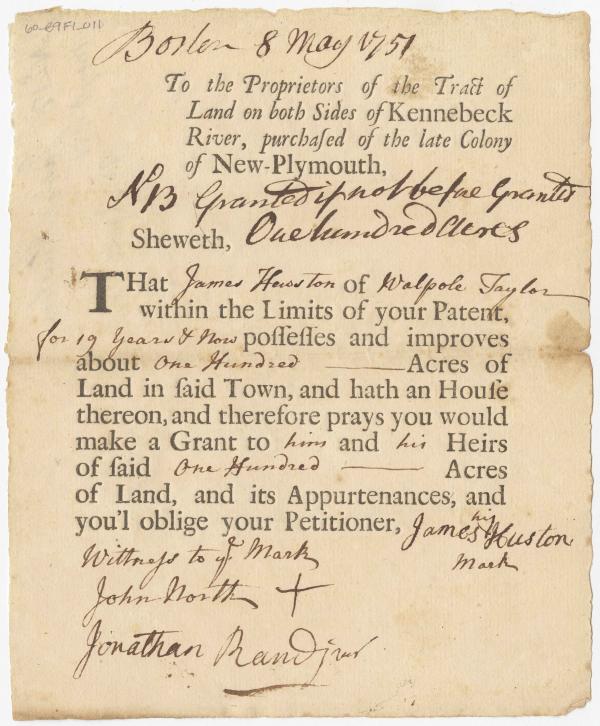 60-89F1-011
Boston 8 May 1751
To the Proprietors of the Tract of
Land on both Sides of Kennebeck
River, purchaſed of the late Colony
of New-Plymouth,
NB Granted if not before Granted
Sheweth, One hundred Acres
THat James Hewston of Walpole Taylor
within the Limits of your Patent,
for 19 Years & Now poſſeſſes and improves
about One Hundred Acres of
Land in ſaid Town, and hath an Houſe
thereon, and therefore prays you would
make a Grant to him and his Heirs
of ſaid One Hundred Acres
of Land, and its Appurtenances, and
you'l oblige your Petitioner, James his Huston
Wittness to ye Mark mark
John North +
Jonathan